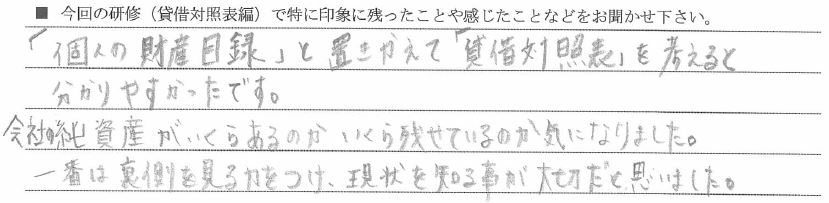 ■ 今回の研修（貸借対照表編）で特に印象に残ったことや感じたことなどをお聞かせ下さい。
「個人の財産目録」と置きかえて「貸借対照表」を考えると
分かりやすかったです。
会社の純資産がいくらあるのかいくら残せているのか気になりました。
一番は裏側を見る力をつけ、現状を知る事が大切だと思いました。